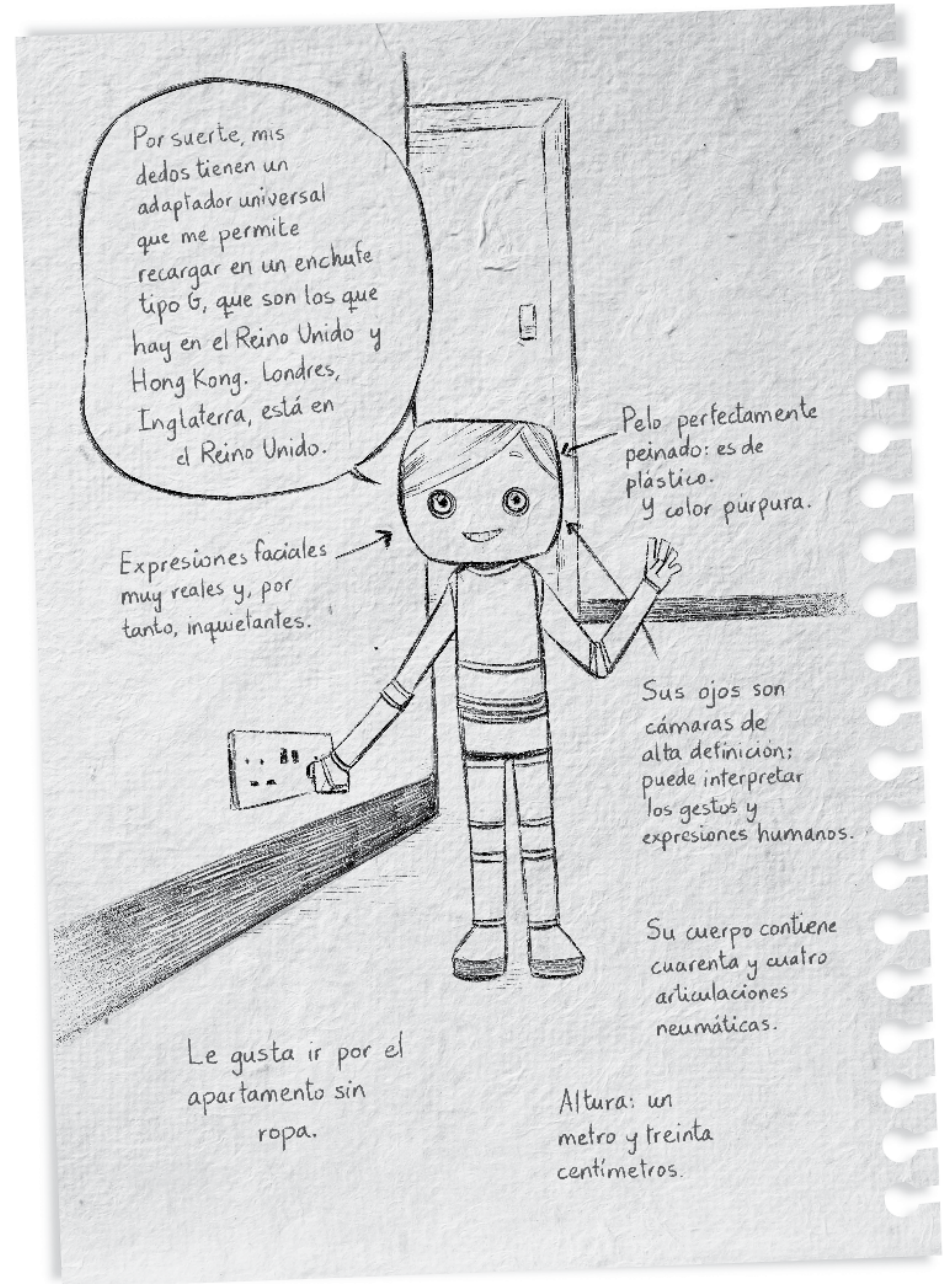 Por suerte, mis
dedos tienen un
adaptador universal
que me permite
recargar en un enchufe
tipo G, que son los que
hay en el Reino Unido y
Hong Kong. Londres,
Inglaterra, está en
el Reino Unido.
Pelo perfectamente
peinado: es de
plástico.
Y color púrpura.
Expresiones faciales
muy reales y, por
tanto, inquietantes.
Sus ojos son
cámaras de
alta definición;
puede interpretar
los gestos y
expresiones humanos.
Su cuerpo contiene
cuarenta y cuatro
articulaciones
neumáticas.
Le gusta ir por el
apartamento sin
ropa.
Altura: un
metro y treinta
centímetros.